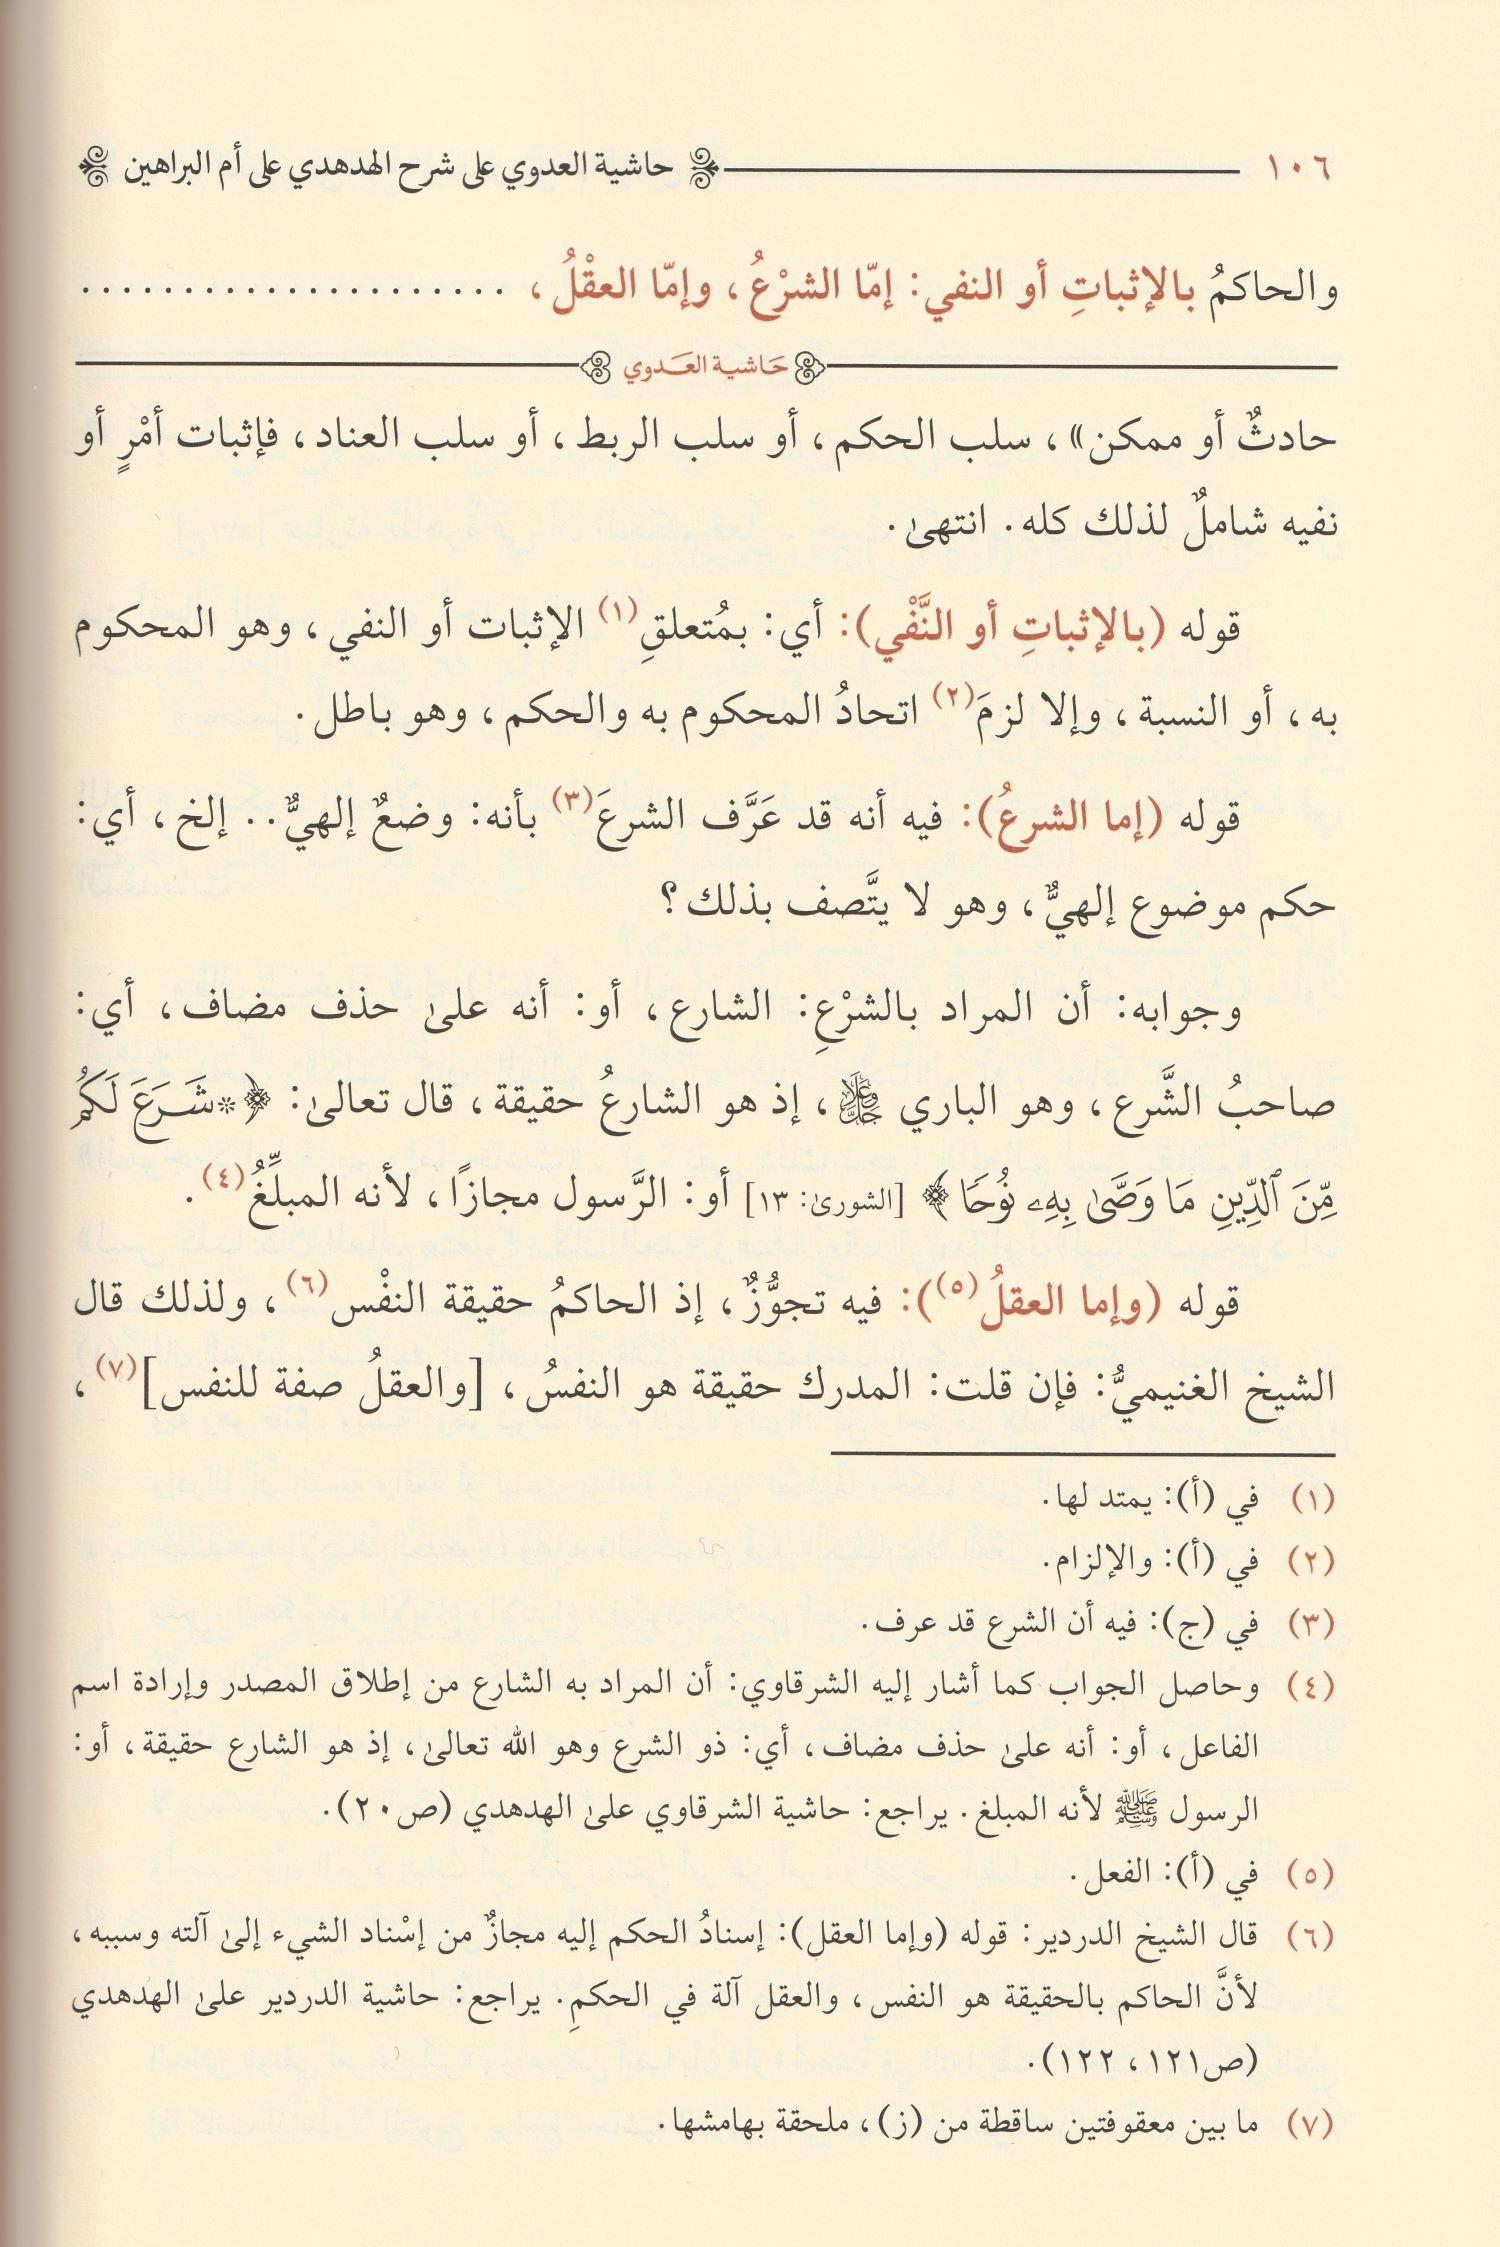 ١٠٦ حاشية العدوي على شرح الهدهدي على أم البراهين
والحاكمُ بالإثباتِ أو النفي: إمّا الشرْعُ، وإمّا العقْلُ، .....................
حَاشية العَدوي
حادثٌ أو ممكن»، سلب الحكم، أو سلب الربط، أو سلب العناد، فإثبات أمْرٍ أو
نفيه شاملٌ لذلك كله. انتهىٰ.
قوله (بالإثباتِ أو النَّفْي): أي: بمُتعلقِ(١) الإثبات أو النفي، وهو المحكوم
به، أو النسبة، وإلا لزمَ(٢) اتحادُ المحكوم به والحكم، وهو باطل.
قوله (إما الشرعُ): فيه أنه قد عَرَّف الشرعَ(٣) بأنه: وضعٌ إلهيٌّ.. إلخ، أي:
حكم موضوع إلهيٌّ، وهو لا يتَّصف بذلك؟
وجوابه: أن المراد بالشرْعِ: الشارع، أو: أنه علىٰ حذف مضاف، أي:
صاحبُ الشَّرع، وهو الباري جَلَّ وَعَلَا، إذ هو الشارعُ حقيقة، قال تعالىٰ: ﴿*شَرَعَ لَكُم
مِّنَ ٱلدِّينِ مَا وَصَّىٰ بِهِۦ نُوحًا﴾ [الشورىٰ: ١٣] أو: الرَّسول مجازاً، لأنه المبلِّغُ(٤).
قوله (وإما العقلُ(٥)): فيه تجوُّزٌ، إذ الحاكمُ حقيقة النفْس(٦)، ولذلك قال
الشيخ الغنيميُّ: فإن قلت: المدرك حقيقة هو النفسُ، [والعقلُ صفة للنفس](٧)،
(١) في (أ): يمتد لها.
(٢) في (أ): والإلزام.
(٣) في (ج): فيه أن الشرع قد عرف.
(٤) وحاصل الجواب كما أشار إليه الشرقاوي: أن المراد به الشارع من إطلاق المصدر وإرادة اسم
الفاعل، أو: أنه علىٰ حذف مضاف، أي: ذو الشرع وهو الله تعالىٰ، إذ هو الشارع حقيقة، أو:
الرسول ﷺ لأنه المبلغ. يراجع: حاشية الشرقاوي علىٰ الهدهدي (ص٢٠).
(٥) في (أ): الفعل.
(٦) قال الشيخ الدردير: قوله (وإما العقل): إسنادُ الحكم إليه مجازٌ من إسْناد الشيء إلىٰ آلته وسببه،
لأنَّ الحاكم بالحقيقة هو النفس، والعقل آلة في الحكمِ. يراجع: حاشية الدردير علىٰ الهدهدي
(ص١٢١، ١٢٢).
(٧) ما بين معقوفتين ساقطة من (ز)، ملحقة بهامشها.